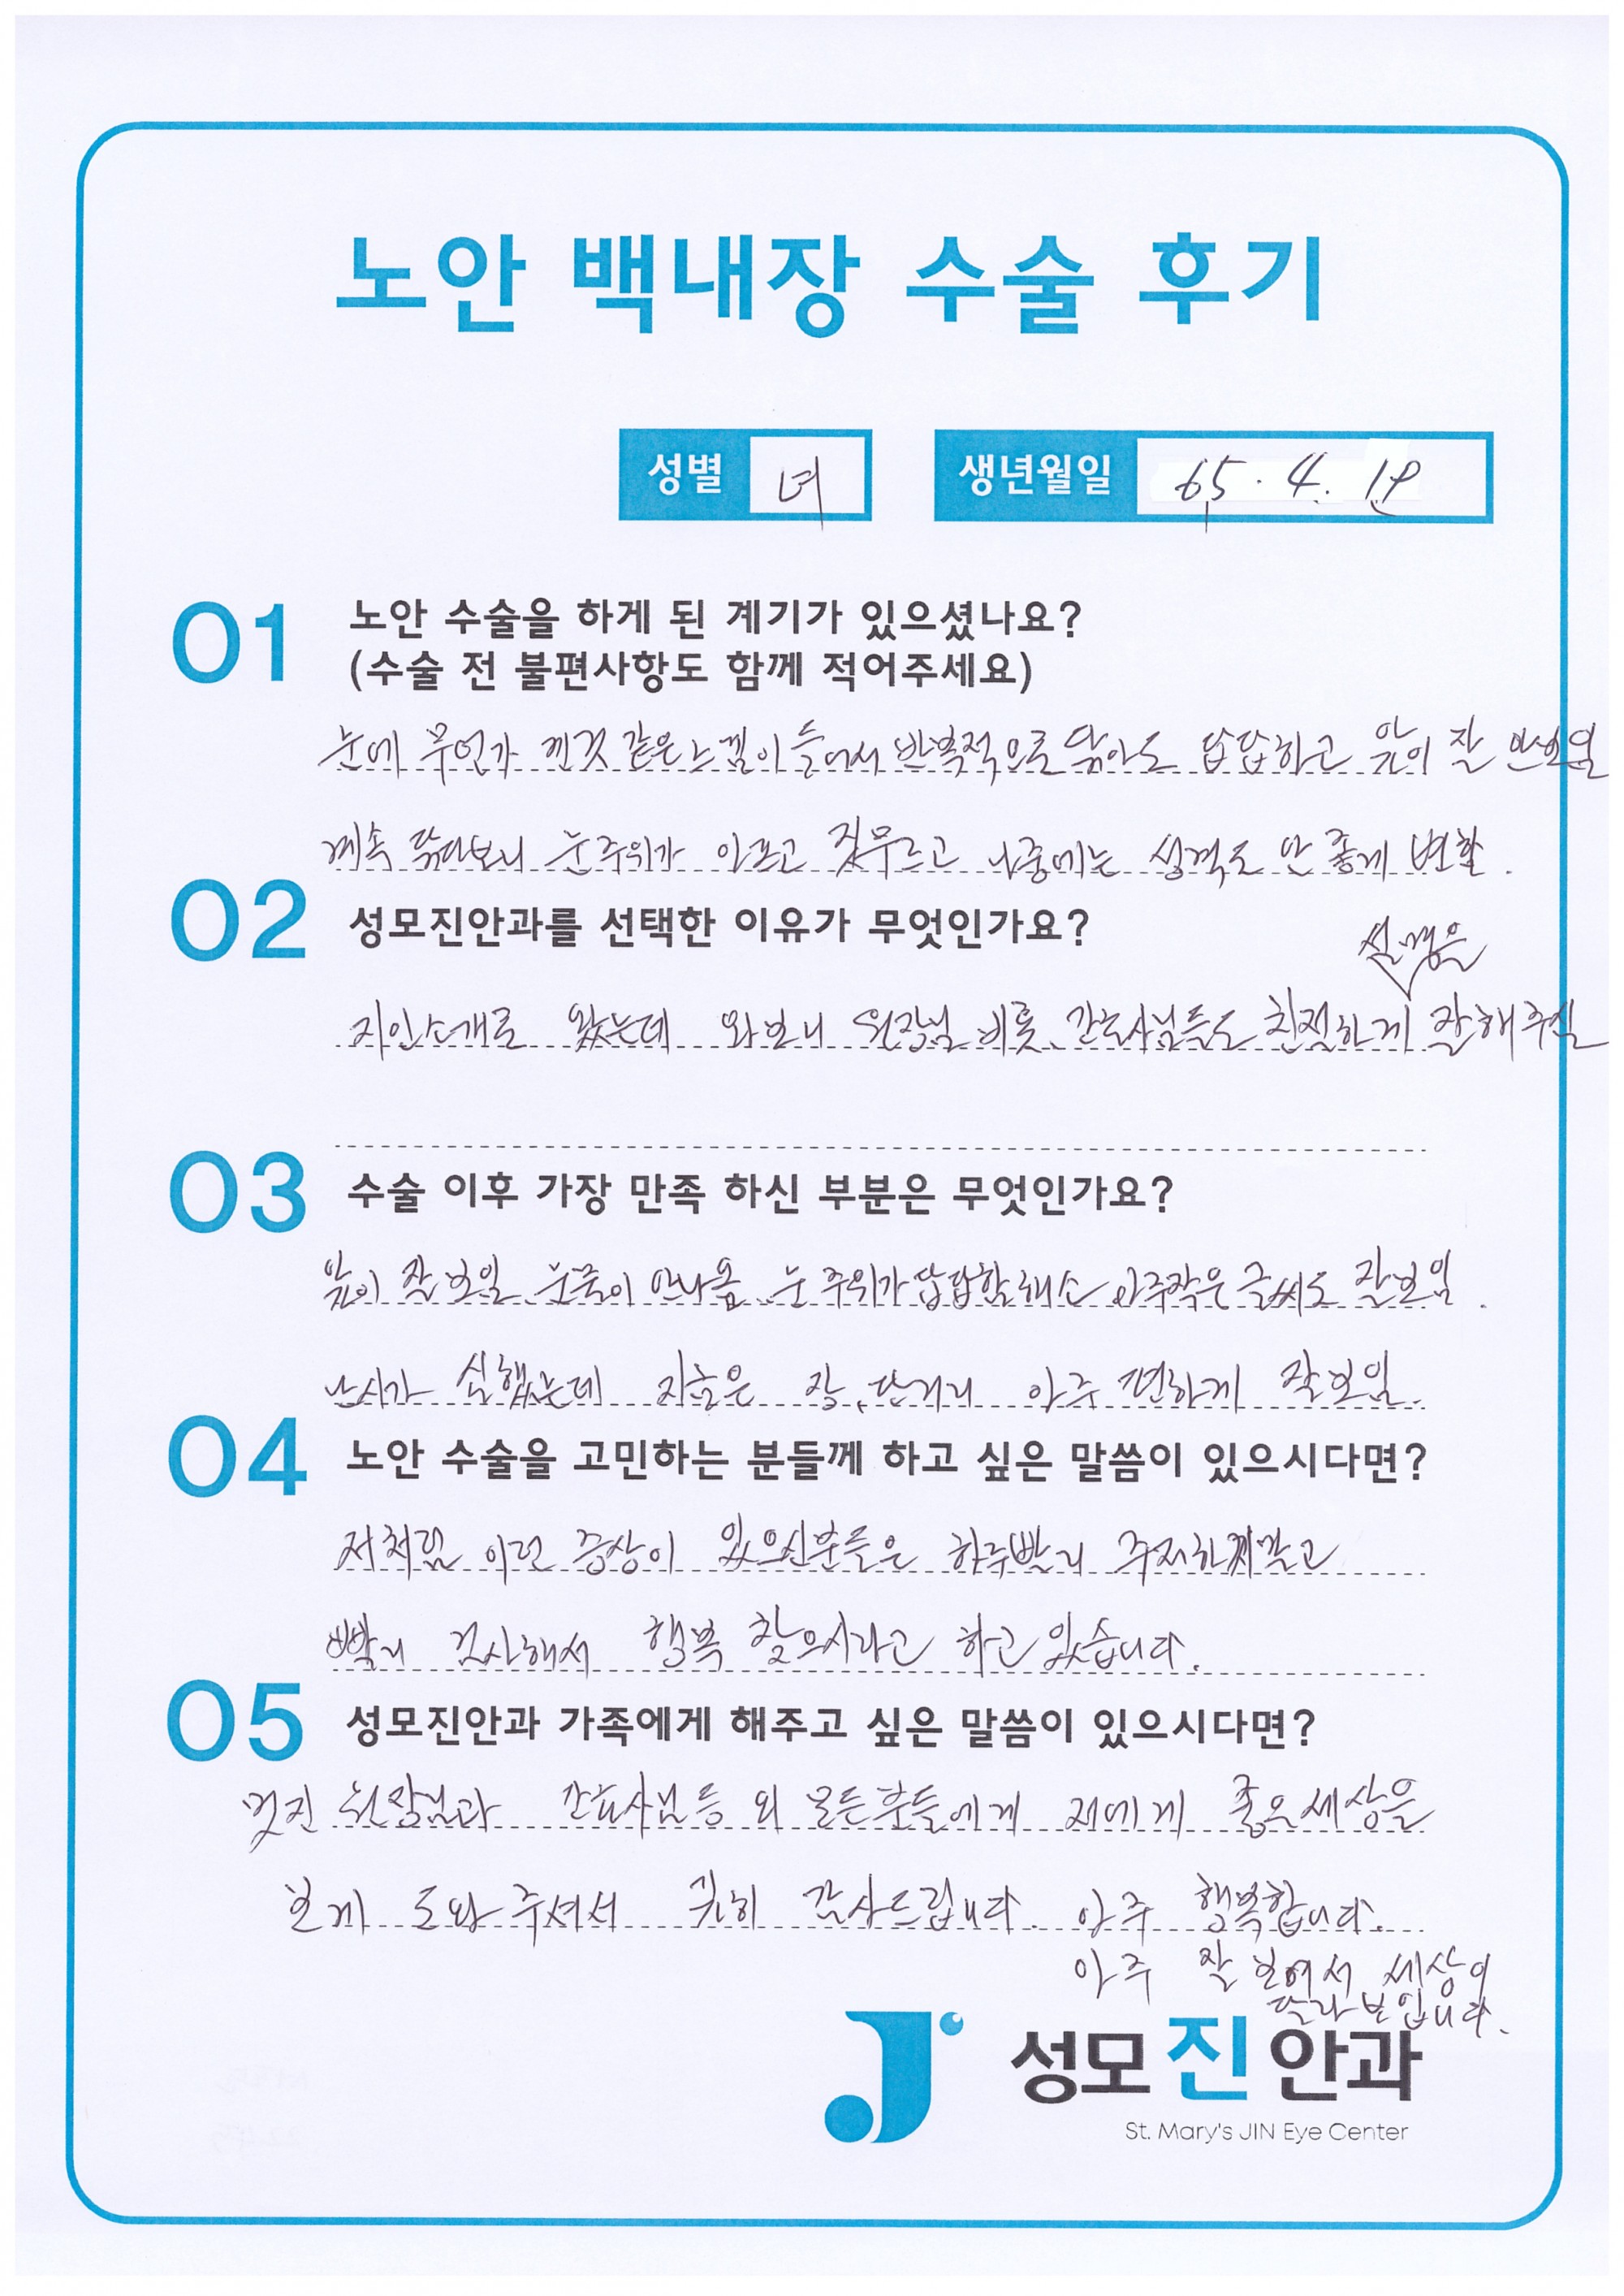 노안 백내장 수술 후기
성별 녀 생년월일 65. 4. 19
01 노안 수술을 하게 된 계기가 있으셨나요?
(수술 전 불편사항도 함께 적어주세요)
눈에 무언가 낀것 같은 느낌이 들어서 반복적으로 닦아도 답답하고 앞이 잘 안보임
계속 닦다보니 눈주위가 아프고 짓무르고 나중에는 성격도 안 좋게 변함.
02 성모진안과를 선택한 이유가 무엇인가요?
설명을
지인소개로 왔는데 와보니 원장님 비롯, 간호사님들도 친절하게 잘해주심
03 수술 이후 가장 만족 하신 부분은 무엇인가요?
앞이 잘 보임. 눈물이 안나옴. 눈 주위가 답답함 해소 아주작은 글씨도 잘보임.
난시가 심했는데 지금은 장, 단거리 아주 편하게 잘보임.
04 노안 수술을 고민하는 분들께 하고 싶은 말씀이 있으시다면?
저처럼 이런 증상이 있으신분들은 하루빨리 주저하지말고
빨리 검사해서 행복 찾으시라고 하고 있습니다.
05 성모진안과 가족에게 해주고 싶은 말씀이 있으시다면?
멋진 원장님과 간호사님등 외 모든분들에게 저에게 좋은세상을
보게 도와주셔서 감사드립니다. 아주 행복합니다.
아주 잘 보여서 세상이
달라 보입니다.
성모진안과
St. Mary's JIN Eye Center